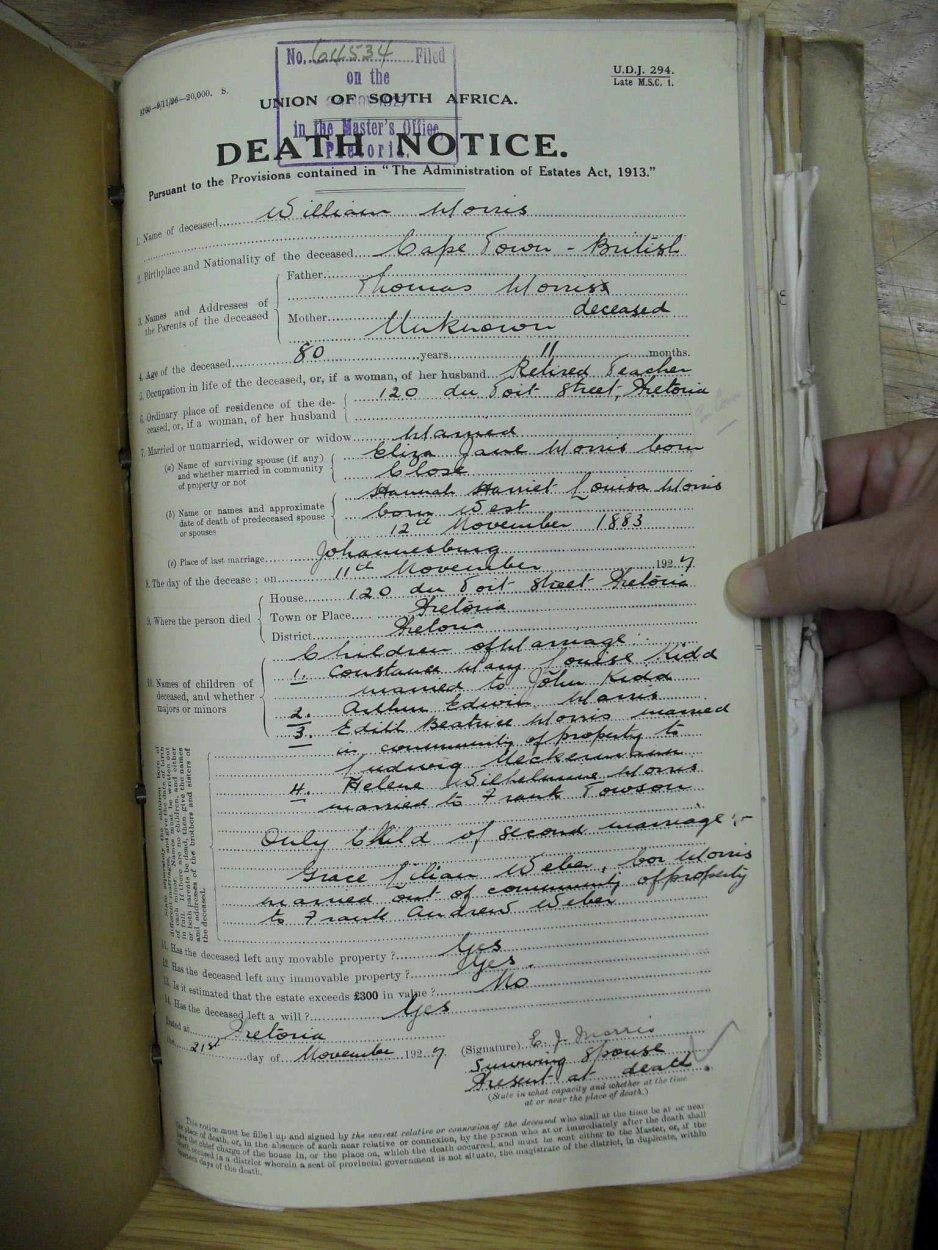 No. 64534 Filed
on the
in the Master's Office
Pretoria.
U.D.J. 294.
Late M.S.C. 1.
—9/11/26—20,000. S.
UNION OF SOUTH AFRICA.
DEATH NOTICE.
Pursuant to the Provisions contained in "The Administration of Estates Act, 1913."
1. Name of deceased William Morris
2. Birthplace and Nationality of the deceased Cape Town - British
3. Names and Addresses of the Parents of the deceased
Father Thomas Morris
deceased
Mother Unknown
4. Age of the deceased 80 years 11 months.
5. Occupation in life of the deceased, or, if a woman, of her husband Retired Teacher
6. Ordinary place of residence of the deceased, or, if a woman, of her husband
120 du Toit Street, Pretoria
7. Married or unmarried, widower or widow Married
(a) Name of surviving spouse (if any) and whether married in community of property or not
Eliza Jane Morris born
Close
(b) Name or names and approximate date of death of predeceased spouse or spouses
Hannah Harriet Louisa Morris
born West
12th November 1883
(c) Place of last marriage Johannesburg
8. The day of the decease : on 11th November 1927
9. Where the person died
House 120 du Toit Street Pretoria
Town or Place Pretoria
District Pretoria
10. Names of children of deceased, and whether majors or minors
Children of Marriage :
1. Constance Mary Louise Kidd
married to John Kidd
2. Arthur Edwin Morris
3. Edith Beatrice Morris married
in community of property to
Ludwig Meckermann
4. Helene Wilhelmine Morris
married to Frank Towson
State separately the children born of different marriages, and give the date of birth of each minor. Names must be written out in full. If there are no children, and either or both parents be dead, then give the names and addresses of the brothers and sisters of the deceased.
Only Child of second marriage :-
Grace Lilian Weber, bor Morris
married out of community of property
to Frank Andrew Weber
11. Has the deceased left any movable property ? Yes
12. Has the deceased left any immovable property ? Yes.
13. Is it estimated that the estate exceeds £300 in value ? No
14. Has the deceased left a will ? Yes
Dated at Pretoria
the 21st day of November 1927
(Signature) E. J. Morris
Surviving Spouse
Present at death.
(State in what capacity and whether at the time
or at or near the place of death.)
This notice must be filled up and signed by the nearest relative or connexion of the deceased who shall at the time be at or near
the place of death, or, in the absence of such near relative or connexion, by the person who at or immediately after the death shall
have the chief charge of the house in, or the place on, which the death occurred, and must be sent either to the Master, or, if the
death occurred in a district wherein a seat of provincial government is not situate, the magistrate of the district, in duplicate, within
fourteen days of the death.